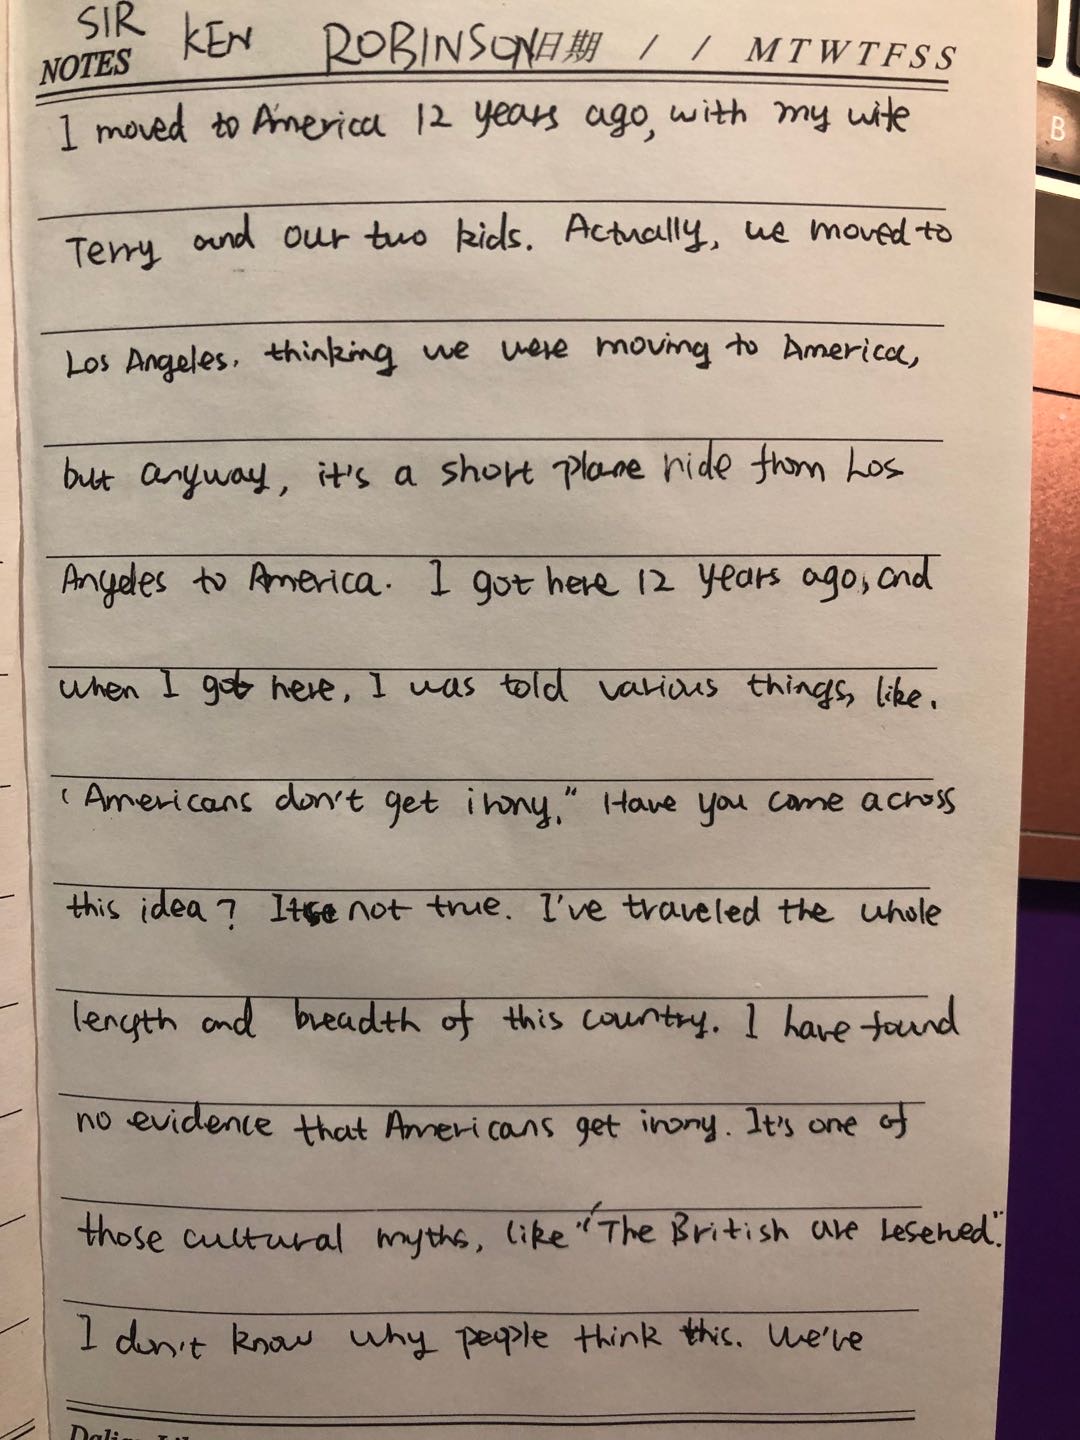 SIR KEN ROBINSON
NOTES 日期 / / M T W T F S S
I moved to America 12 years ago, with my wife
Terry and our two kids. Actually, we moved to
Los Angeles. thinking we were moving to America,
but anyway, it's a short plane ride from Los
Angeles to America. I got here 12 years ago, and
when I got here, I was told various things, like.
"Americans don't get irony." Have you come across
this idea? It's not true. I've traveled the whole
length and breadth of this country. I have found
no evidence that Americans get irony. It's one of
those cultural myths, like "The British are reserved".
I don't know why people think this. We've